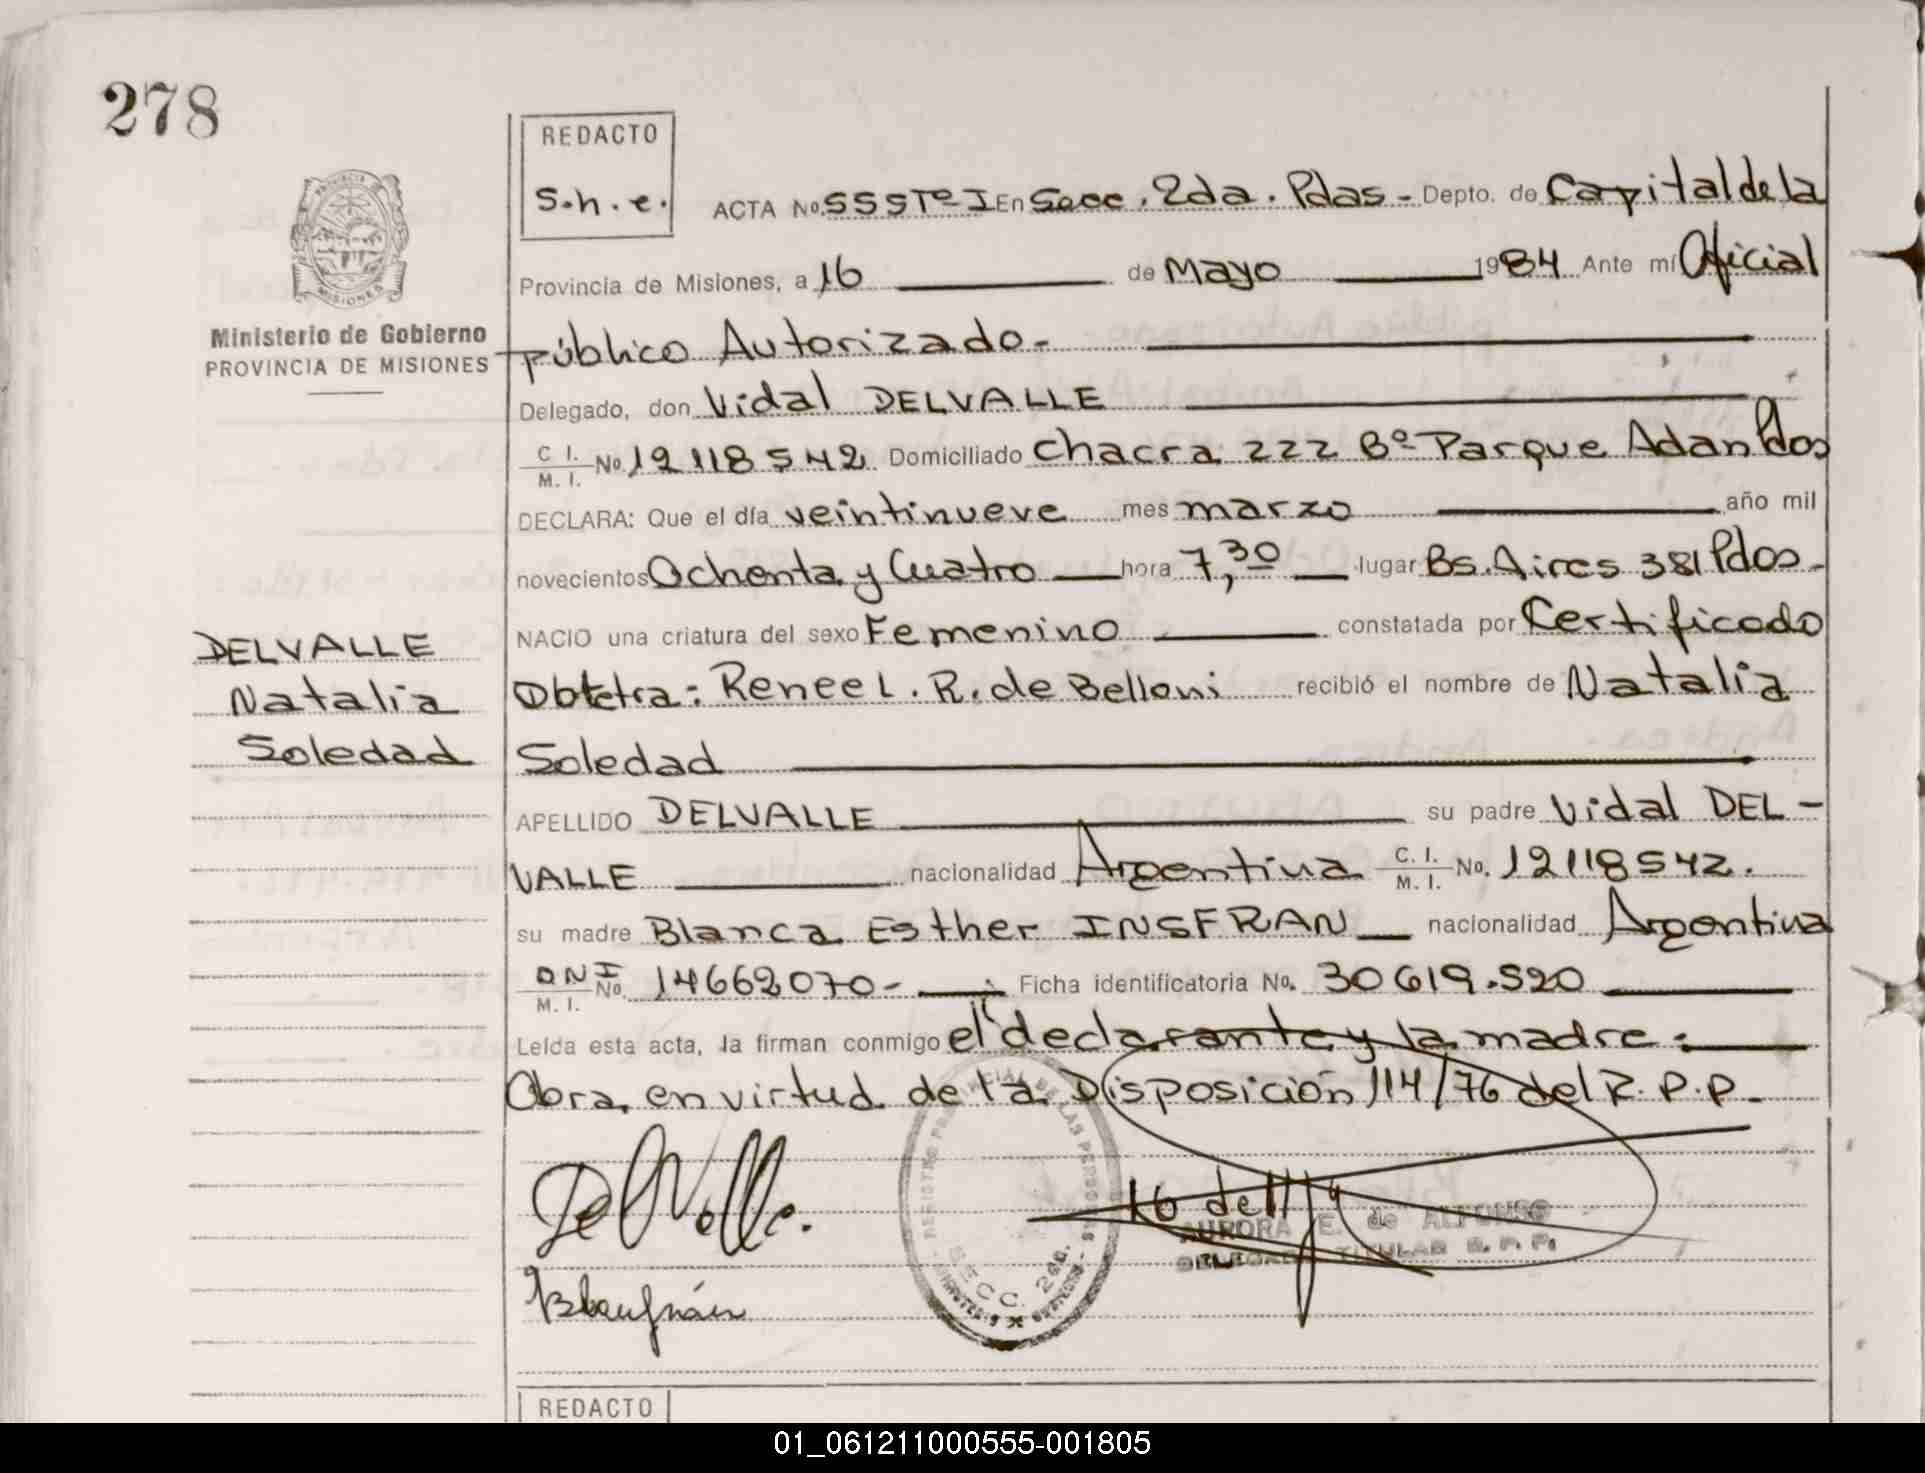 278
REDACTO
S.h.e.
ACTA No. 555 Tº I En Secc. 2da. Pdas - Depto. de Capital de la
PROVINCIA DE MISIONES
Ministerio de Gobierno
PROVINCIA DE MISIONES
Provincia de Misiones, a 16 de Mayo 1984 Ante mí Oficial
público Autorizado.-
Delegado, don Vidal DELVALLE
C. I.
M. I. No. 12118542 Domiciliado Chacra 222 Bº Parque Adan Pdos
DECLARA: Que el día veintinueve mes marzo año mil
novecientos Ochenta y Cuatro hora 7,30 lugar Bs. Aires 381 Pdos-
NACIO una criatura del sexo Femenino constatada por Certificado
DELVALLE
Natalia
Soledad
Obtetra: Renee L. R. de Belloni recibió el nombre de Natalia
Soledad
APELLIDO DELVALLE su padre Vidal DEL-
VALLE nacionalidad Argentina C. I.
M. I. No. 12118542.
su madre Blanca Esther INSFRAN nacionalidad Argentina
DNI
M. I. No. 14662070- Ficha identificatoria No. 30619.520
Leída esta acta, la firman conmigo el declarante y la madre:
Obra en virtud de la Disposición 114/76 del R.P.P.-
DelValle.
REGISTRO PROVINCIAL DE LAS PERSONAS
SECC. 2da.
AURORA E. de ALFONSO
DELEGADA TITULAR R. P. P.
REDACTO
01_061211000555-001805